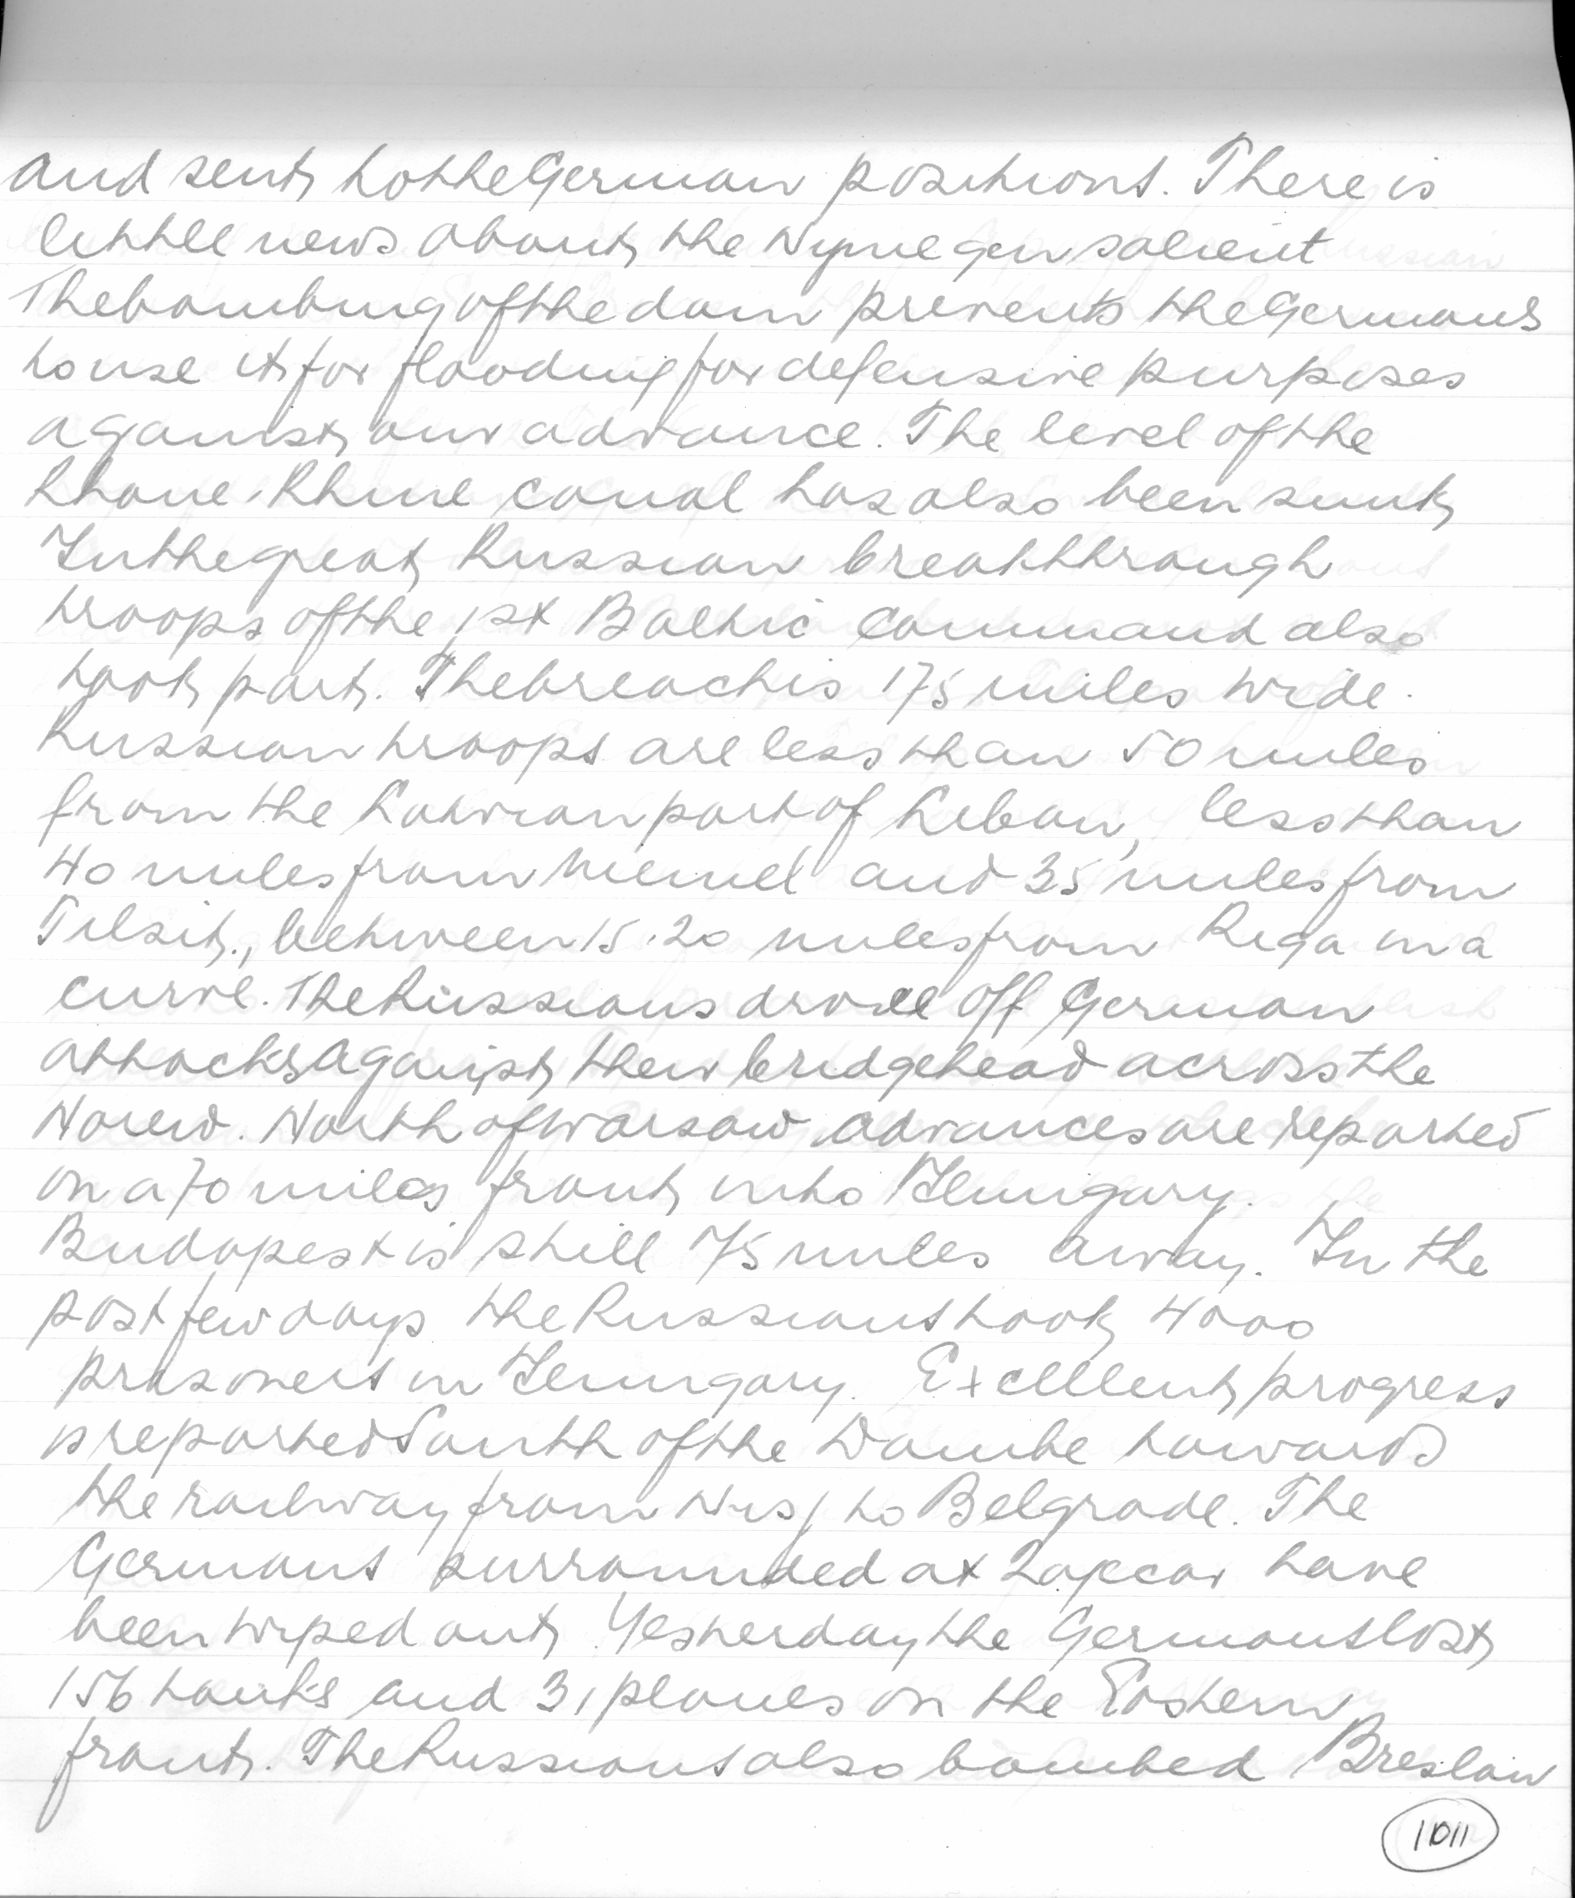 and sent to the German positions. There is
little news about the Nymegen salient
The bombing of the dam prevents the Germans
to use it for flooding for defensive purposes
against our advance. The level of the
Rhone-Rhine canal has also been sunk
In the great Russian breakthrough
troops of the 1st Baltic Command also
took part. The breach is 175 miles wide.
Russian troops are less than 50 miles
from the Latvian port of Libau, less than
40 miles from Memel and 35 miles from
Tilsit., between 15-20 miles from Riga in a
curve. The Russians drove off German
attacks against their bridgehead across the
Narew. North of Warsaw advances are reported
on a 70 miles front into Hungary.
Budapest is still 75 miles away. In the
past few days the Russians took 4000
prisoners in Hungary. Excellent progress
is reported South of the Danube towards
the railway from Nis to Belgrade. The
Germans surrounded at have
been wiped out. Yesterday the Germans lost
156 tanks and 31 planes on the Eastern
front. The Russians also bombed Breslau
1011